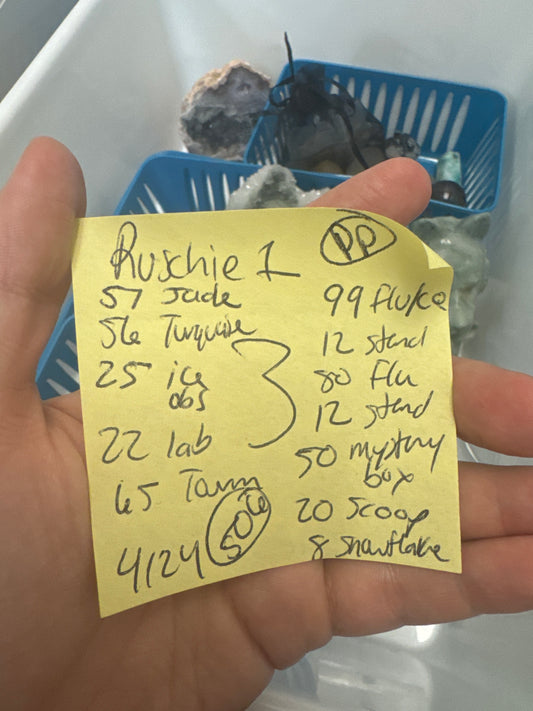 Ruschie 1
PP
57 Jade
56 Turquoise
25 ice
obs
22 lab
65
4/24
506
99 flu/ca
12 stand
80 flu
12 stand
50 mystery
box
20 Scoop
8 snowflake